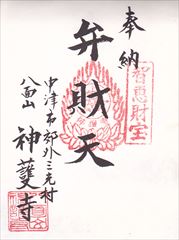 奉納
智恵財宝
弁財天
中津市郊外三光村
八面山 神護寺